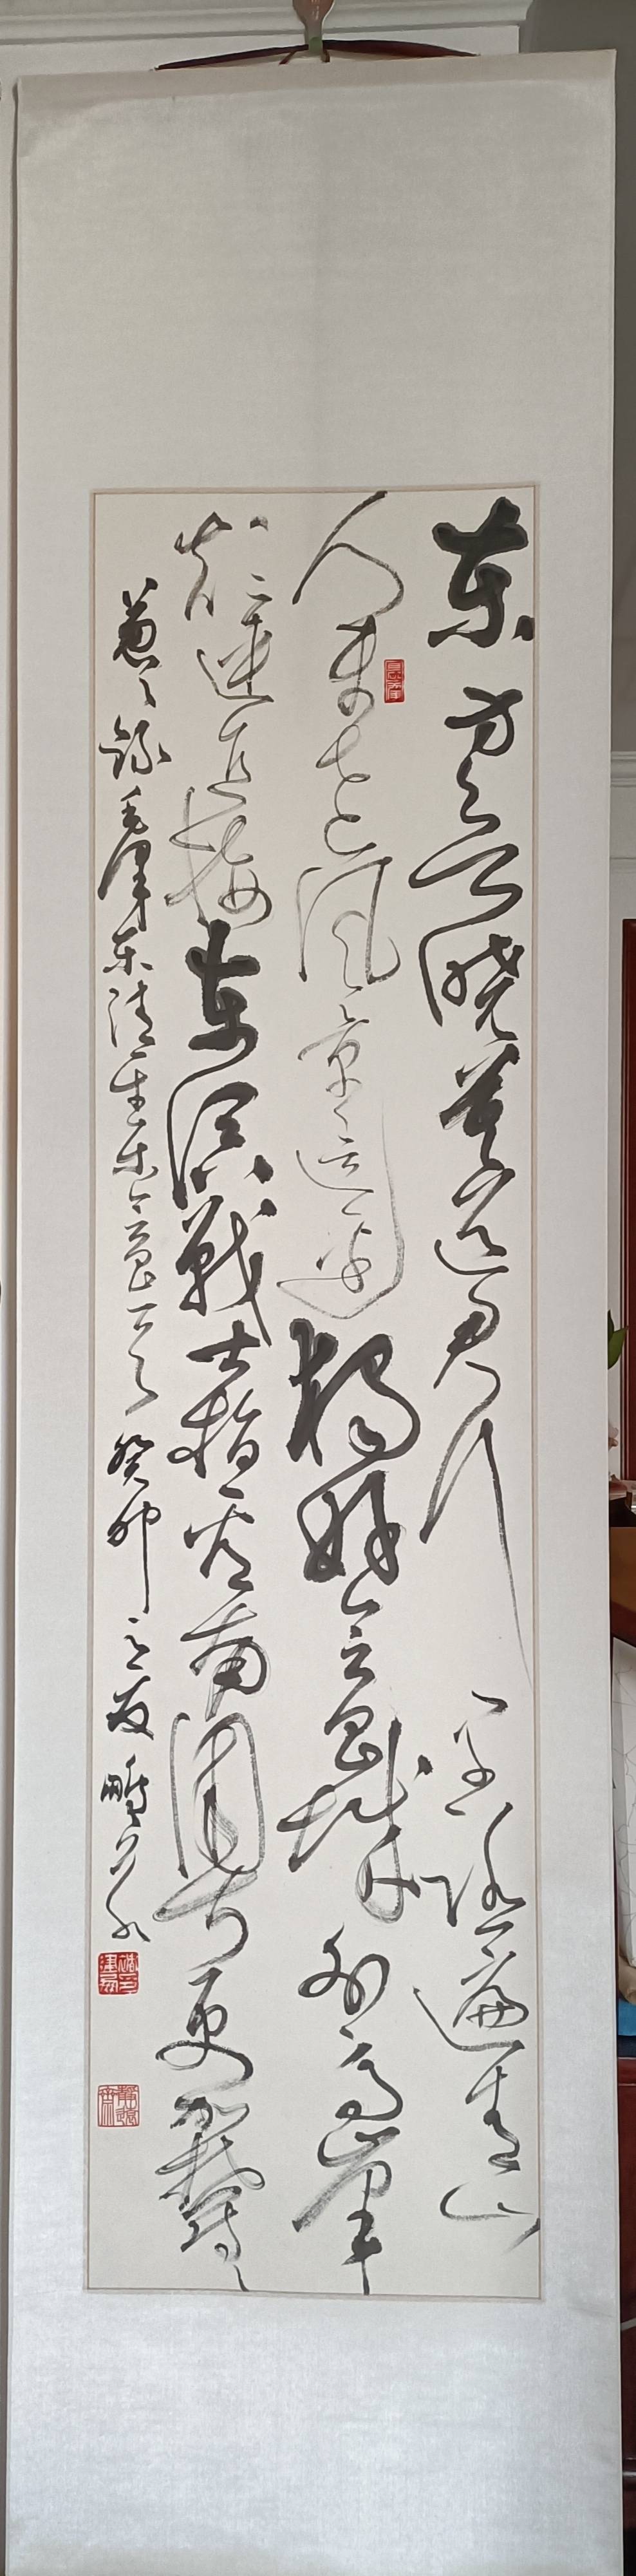 东方欲晓莫道君行早踏遍青山
人未老风景這边独好会昌城外高峯
颠连直接东溟戰士指看南粤更加鬱〻
葱〻 錄毛泽东清平乐会昌一首 癸卯之夏